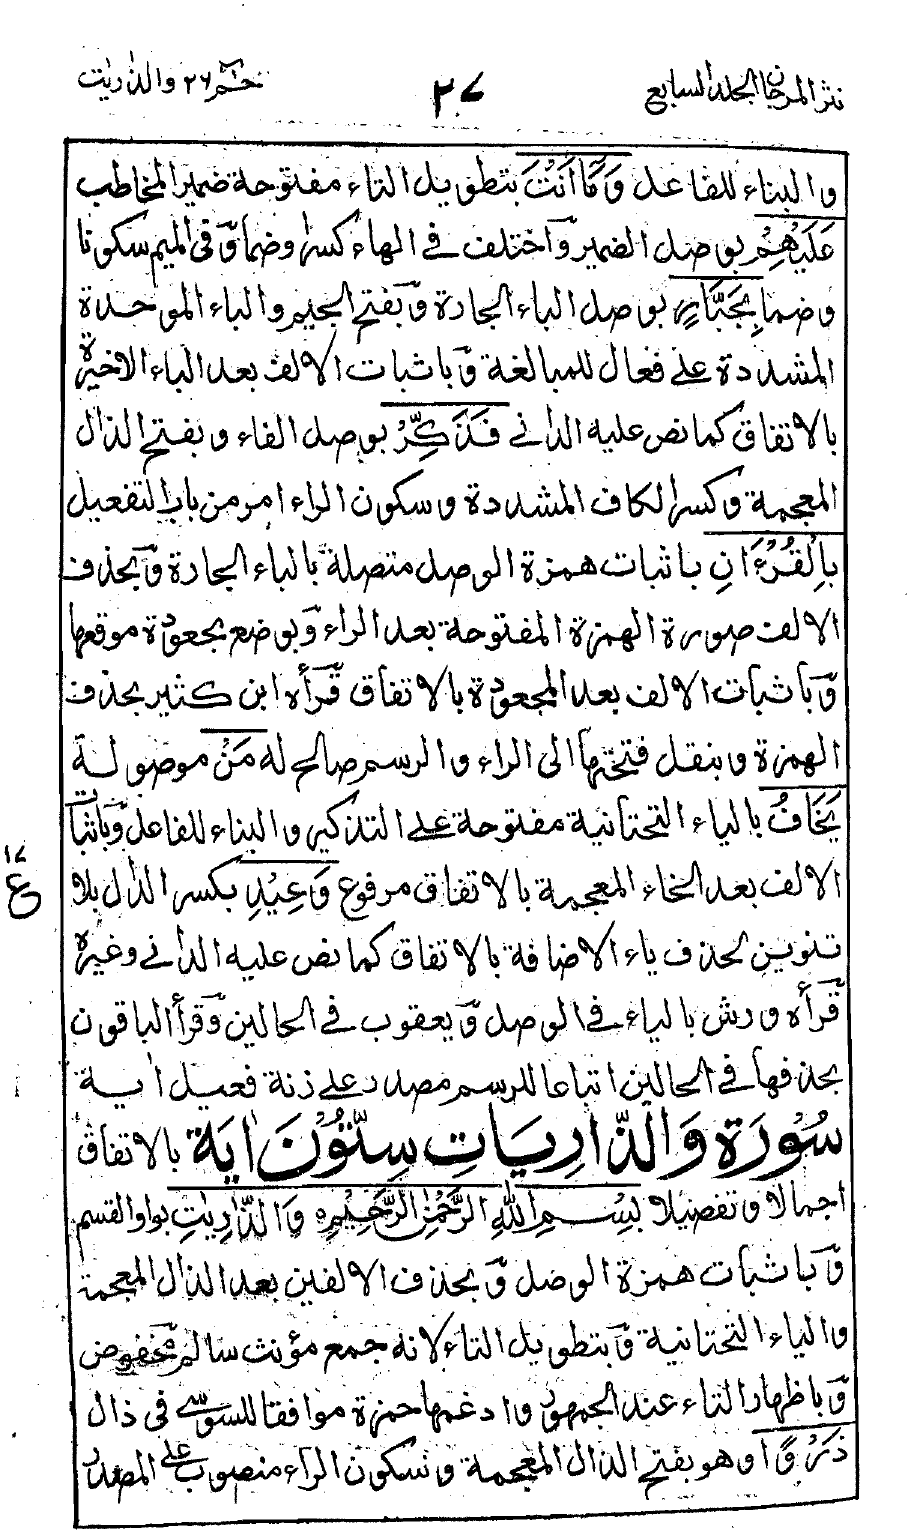 نثر المرجان الجلد السابع
٢٧
حٰم ٢٦ والذاريٰت
والبناء للفاعل وَمَا أَنْتَ بتطويل التاء مفتوحة ضمير المخاطب
عَلَيْهِمْ بوصل الضمير واختلف في الهاء كسرا وضما وفي الميم سكونا
وضما بِجَبَّارٍ بوصل الباء الجارة وبفتح الجيم والباء الموحدة
المشددة على فعال للمبالغة وباثبات الالف بعد الباء الاخيرة
بالاتفاق كما نص عليه الداني فَذَكِّرْ بوصل الفاء وبفتح الذال
المعجمة وكسر الكاف المشددة وسكون الراء امر من باب التفعيل
بِالْقُرْءَانِ باثبات همزة الوصل متصلة بالباء الجارة وبحذف
الالف صورة الهمزة المفتوحة بعد الراء وبوضع مجعودة موقعها
وباثبات الالف بعد المجعودة بالاتفاق قرأه ابن كثير بحذف
الهمزة وبنقل فتحتها الى الراء والرسم صالح له مَنْ موصولة
يَخَافُ بالياء التحتانية مفتوحة على التذكير والبناء للفاعل وباثبات
الالف بعد الخاء المعجمة بالاتفاق مرفوع وَعِيْدِ بكسر الدال بلا
١٧
ع
تنوين لحذف ياء الاضافة بالاتفاق كما نص عليه الداني وغيره
قرأه ورش بالياء في الوصل ويعقوب في الحالين وقرأ الباقون
بحذفها في الحالين اتباعا للرسم مصدر على زنة فعيل اية
سُوْرَة وَالذَّارِيَاتِ سِتُّوْنَ اٰيَة بالاتفاق
اجمالا وتفصيلا بِسْمِ اللهِ الرَّحْمٰنِ الرَّحِيْمِ وَالذّٰرِيٰتِ بواو القسم
وباثبات همزة الوصل وبحذف الالفين بعد الذال المعجمة
والياء التحتانية وبتطويل التاء لانه جمع مؤنث سالم مخفوض
وباظهار التاء عند الجمهور وادغمها حمزة موافقا للسوسي في ذال
ذَرْوًا وهو بفتح الذال المعجمة وسكون الراء منصوب على المصدر